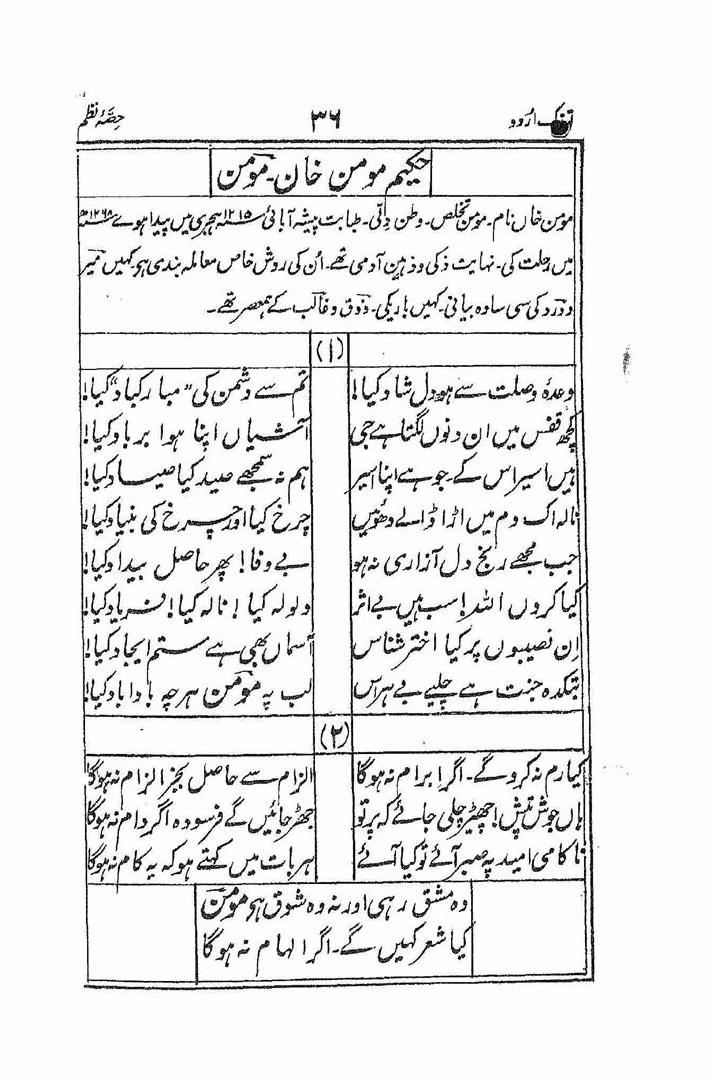 تزک اُردو ۳۶ حِصّۂ نظم
حکیم مومن خان۔ مومن
مومن خاں نام۔ مومن تخلص۔ وطن دِلّی۔ طبابت پیشہ آبائی ۱۲۱۵؁ ہجری میں پیدا ہوے ۱۲۶۸؁ھ
میں رحلت کی۔ نہایت ذکی و ذہین آدمی تھے۔ اُن کی روش خاص معاملہ بندی ہی کہیں میر
و درد کی سی سادہ بیانی۔ کہیں باریکی۔ ذوق و غالب کے ہمعصر تھے۔
(۱)
وعدۂ وصلت سے ہو دل شاد کیا! تم سے دشمن کی "مبارکباد" کیا!
کچھ قفس میں ان دنوں لگتا ہے جی آشیاں اپنا ہوا برباد کیا!
ہیں اسیر اس کے۔ جو ہے اپنا اسیر ہم نہ سمجھے صید کیا صیاد کیا!
نالہ اک دم میں اڑا ڈالے دھوئیں چرخ کیا اور چرخ کی بنیاد کیا!
جب مجھے رنج دل آزاری نہ ہو بے وفا! پھر حاصل بیداد کیا!
کیا کروں اللہ! سب ہیں بے اثر ولولہ کیا! نالہ کیا! فریاد کیا!
اِن نصیبوں پر کیا اختر شناس آسماں بھی ہے ستم ایجاد کیا!
بتکدہ جنت ہے چلیے بے ہراس لب پہ مومن ہرچہ بادا باد کیا!
(۲)
کیا رم نہ کرو گے۔ اگر ابرام نہ ہوگا الزام سے حاصل بجز الزام نہ ہوگا
ہاں جوش تپش! چھیڑ چلی جائے کہ پر تو جھڑ جائیں گے فرسودہ اگر دام نہ ہوگا
ناکامی امید پہ صبر آئے تو کیا آئے ہر بات میں کہتے ہو کہ یہ کام نہ ہوگا
وہ مشق رہی اور نہ وہ شوق ہی مومن
کیا شعر کہیں گے۔ اگر الہام نہ ہوگا